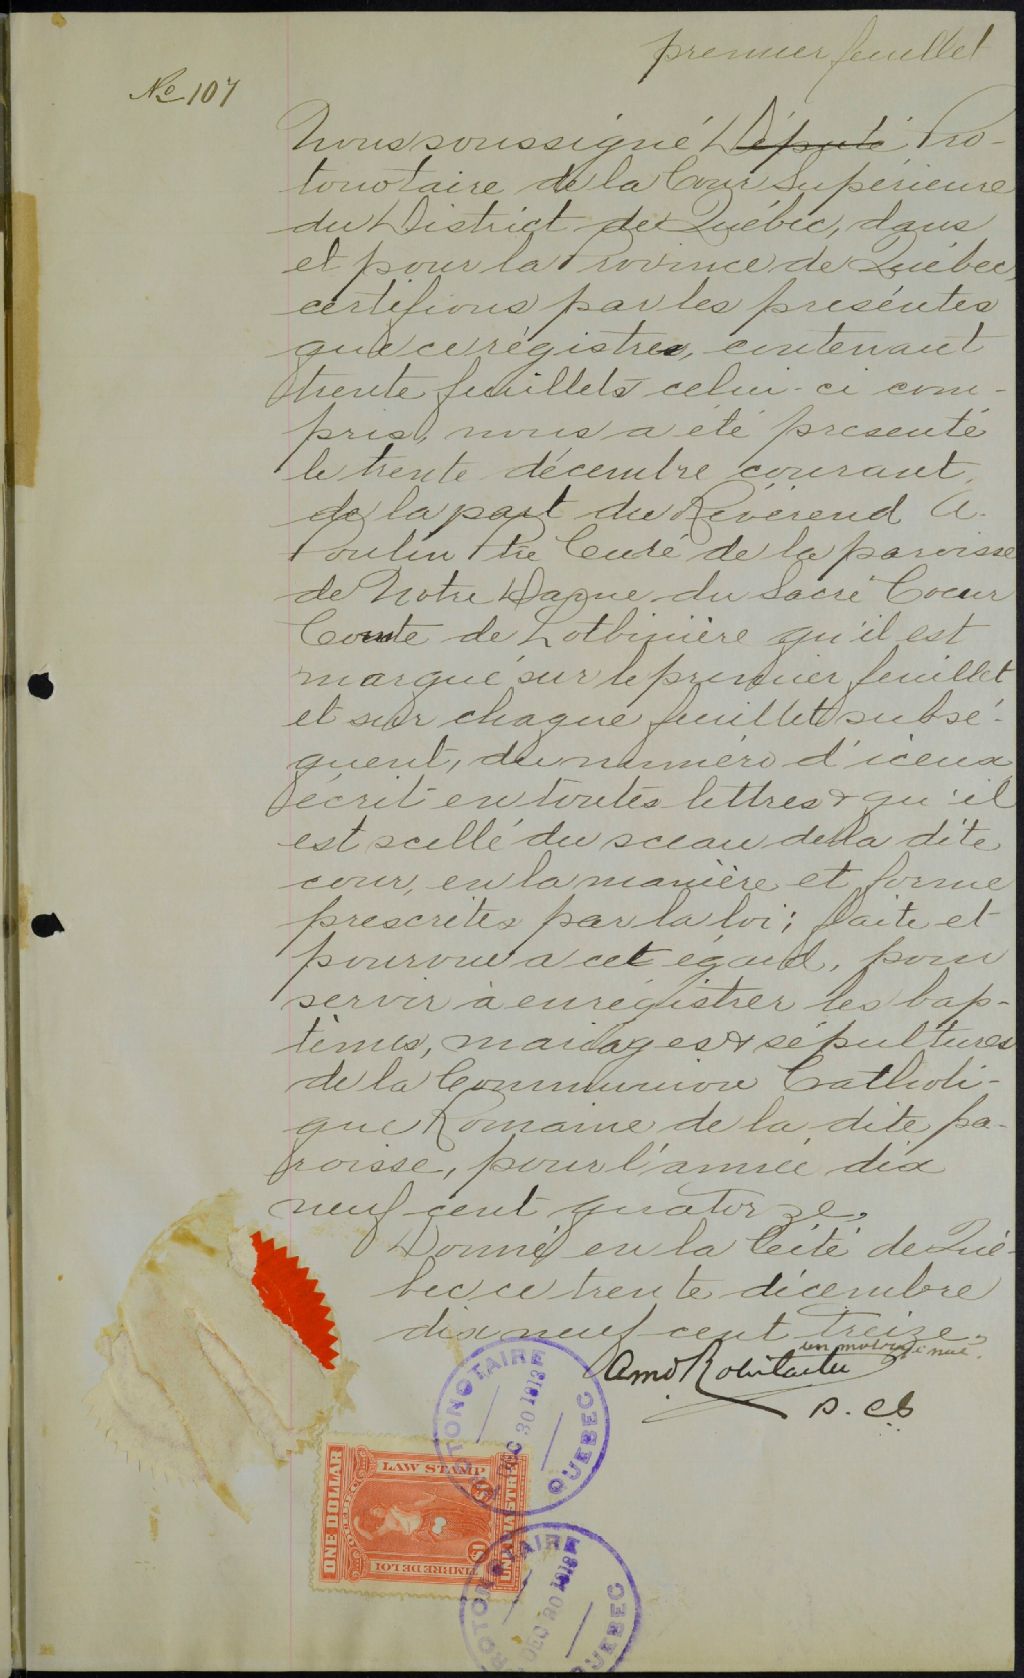 premier feuillet
No 107
Nous soussigné Député Pro-
tonotaire de la Cour Supérieure
du District de Québec, dans
et pour la Province de Québec,
certifions par les présentes
que ce régistre, contenant
trente feuillets celui-ci com-
pris, nous a été présenté
le trente décembre courant,
de la part du Révérend A.
Poulin Ptre Curé de la paroisse
de Notre Dame du Sacré Coeur
Comté de Lotbinière qu'il est
marqué sur le premier feuillet
et sur chaque feuillet subsé-
quent, du numéro d'iceux
écrit en toutes lettres & qu'il
est scellé du sceau de la dite
cour, en la manière et forme
prescrites par la loi; faite et
pourvue a cet égard, pour
servir à enrégistrer les bap-
têmes, mariages & sépultures
de la Communion Catholi-
que Romaine de la dite pa-
roisse, pour l'année dix
neuf cent quatorze.
Donné en la Cité de Qué-
bec ce trente décembre
dix neuf cent treize.
un mot nul.
Amd Robitaille
D. C. S
PROTONOTAIRE
DEC 30 1913
QUEBEC
ONE DOLLAR
LAW STAMP
$1
UNE PIASTRE
TIMBRE DE LOI
$1
PROTONOTAIRE
DEC 30 1913
QUEBEC